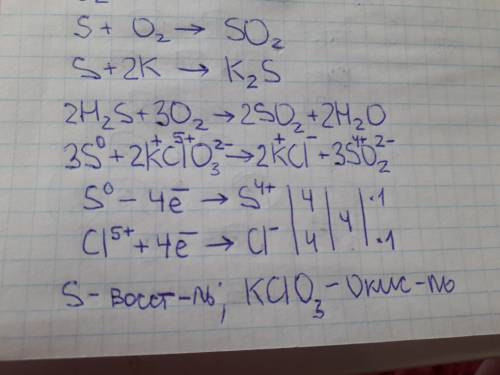 S + O₂ → SO₂
S + 2K → K₂S
2H₂S + 3O₂ → 2SO₂ + 2H₂O
3S⁰ + 2K⁺Cl⁵⁺O₃²⁻ → 2K⁺Cl⁻ + 3S⁴⁺O₂²⁻
S⁰ − 4e̅ → S⁴⁺ | 4 | 4 | ·1
Cl⁵⁺ + 4e̅ → Cl⁻ | 4 | | ·1
S - восст-ль; KClO₃ - Окис-ль